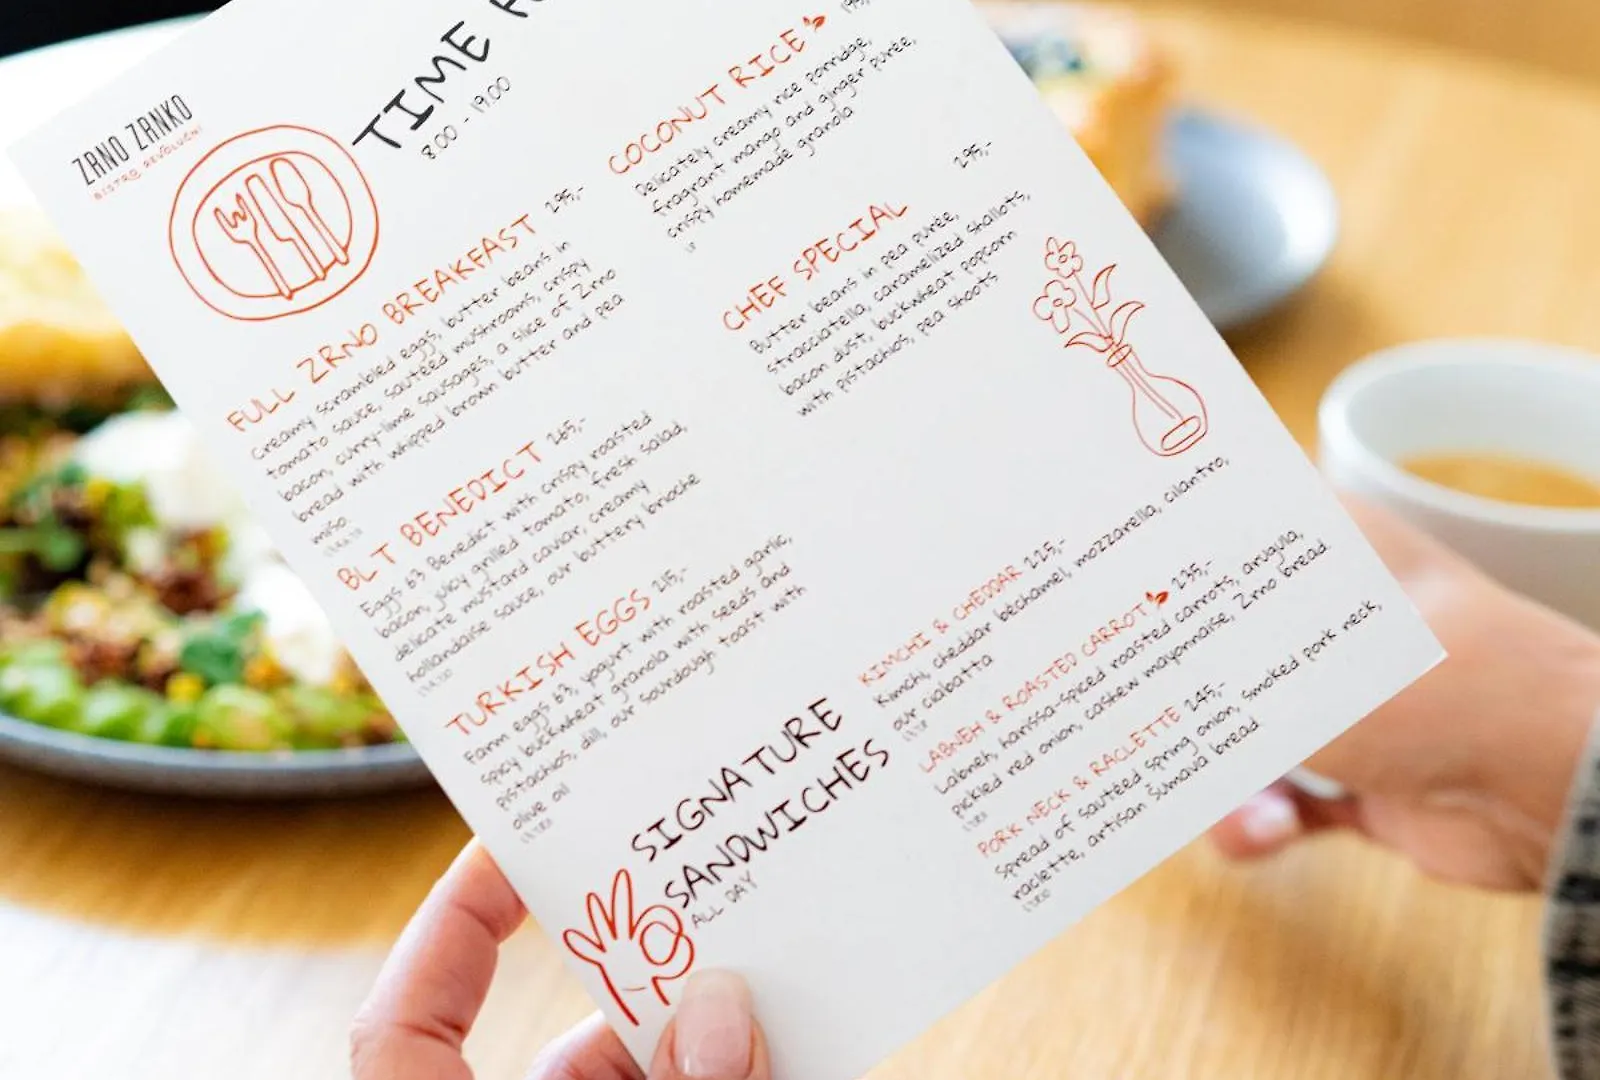 ZRNO ZRNKO
BISTRO REVOLUČNÍ
TIME
8:00 - 19:00
FULL ZRNO BREAKFAST 295,-
Creamy scrambled eggs, butter beans in
tomato sauce, sautéed mushrooms, crispy
bacon, curry-lime sausages, a slice of Zrno
bread with whipped brown butter and pea
miso
BLT BENEDICT 265,-
Eggs 63 Benedict with crispy roasted
bacon, juicy grilled tomato, fresh salad,
delicate mustard caviar, creamy
hollandaise sauce, our buttery brioche
TURKISH EGGS 215,-
Farm eggs 63, yogurt with roasted garlic,
spicy buckwheat granola with seeds and
pistachios, dill, our sourdough toast with
olive oil
COCONUT RICE
Delicately creamy rice porridge,
fragrant mango and ginger purée,
crispy homemade granola
295,-
CHEF SPECIAL
Butter beans in pea purée,
stracciatella, caramelized shallots,
bacon dust, buckwheat popcorn
with pistachios, pea shoots
SIGNATURE
SANDWICHES
ALL DAY
KIMCHI & CHEDDAR 225,-
Kimchi, cheddar béchamel, mozzarella, cilantro,
our ciabatta
LABNEH & ROASTED CARROT 235,-
Labneh, harissa-spiced roasted carrots, arugula,
pickled red onion, cashew mayonnaise, Zrno bread
PORK NECK & RACLETTE 245,-
Spread of sautéed spring onion, smoked pork neck,
raclette, artisan Šumava bread